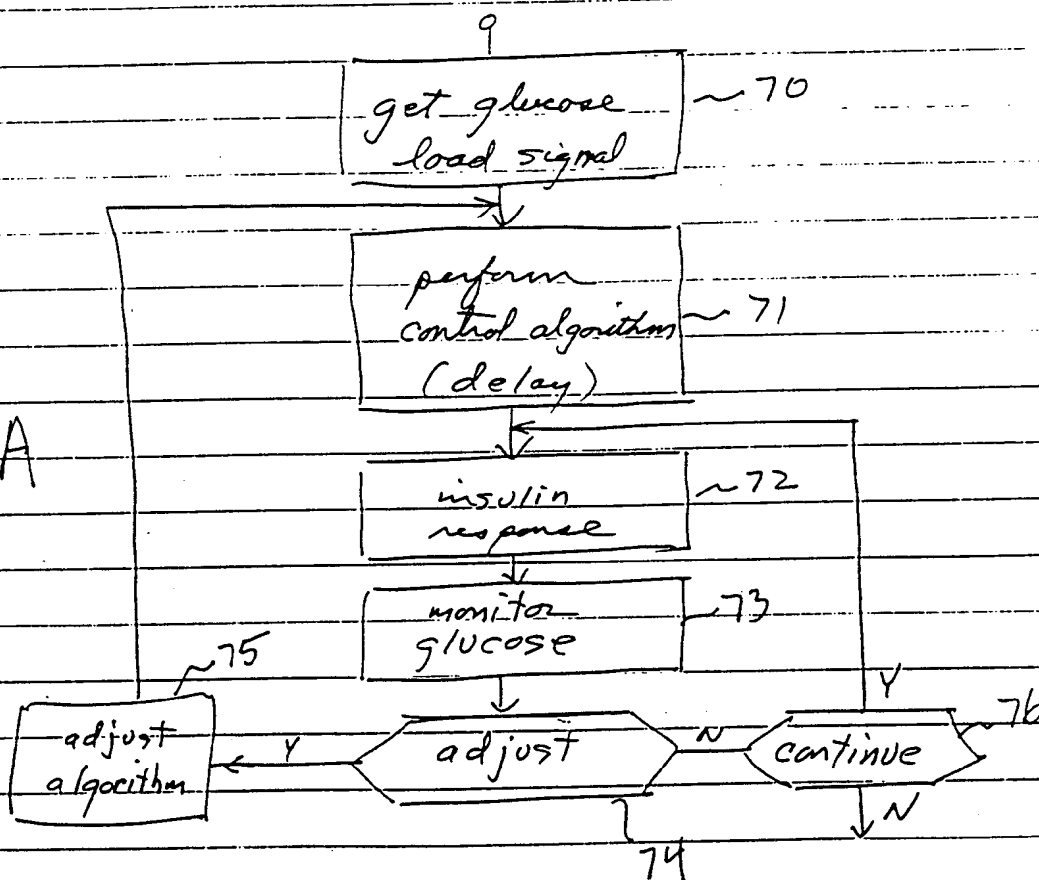 9
get glucose
load signal
70
perform
control algorithm
(delay)
71
A
insulin
response
72
monitor
glucose
73
75
adjust
algorithm
Y
adjust
N
74
Y
76
continue
N